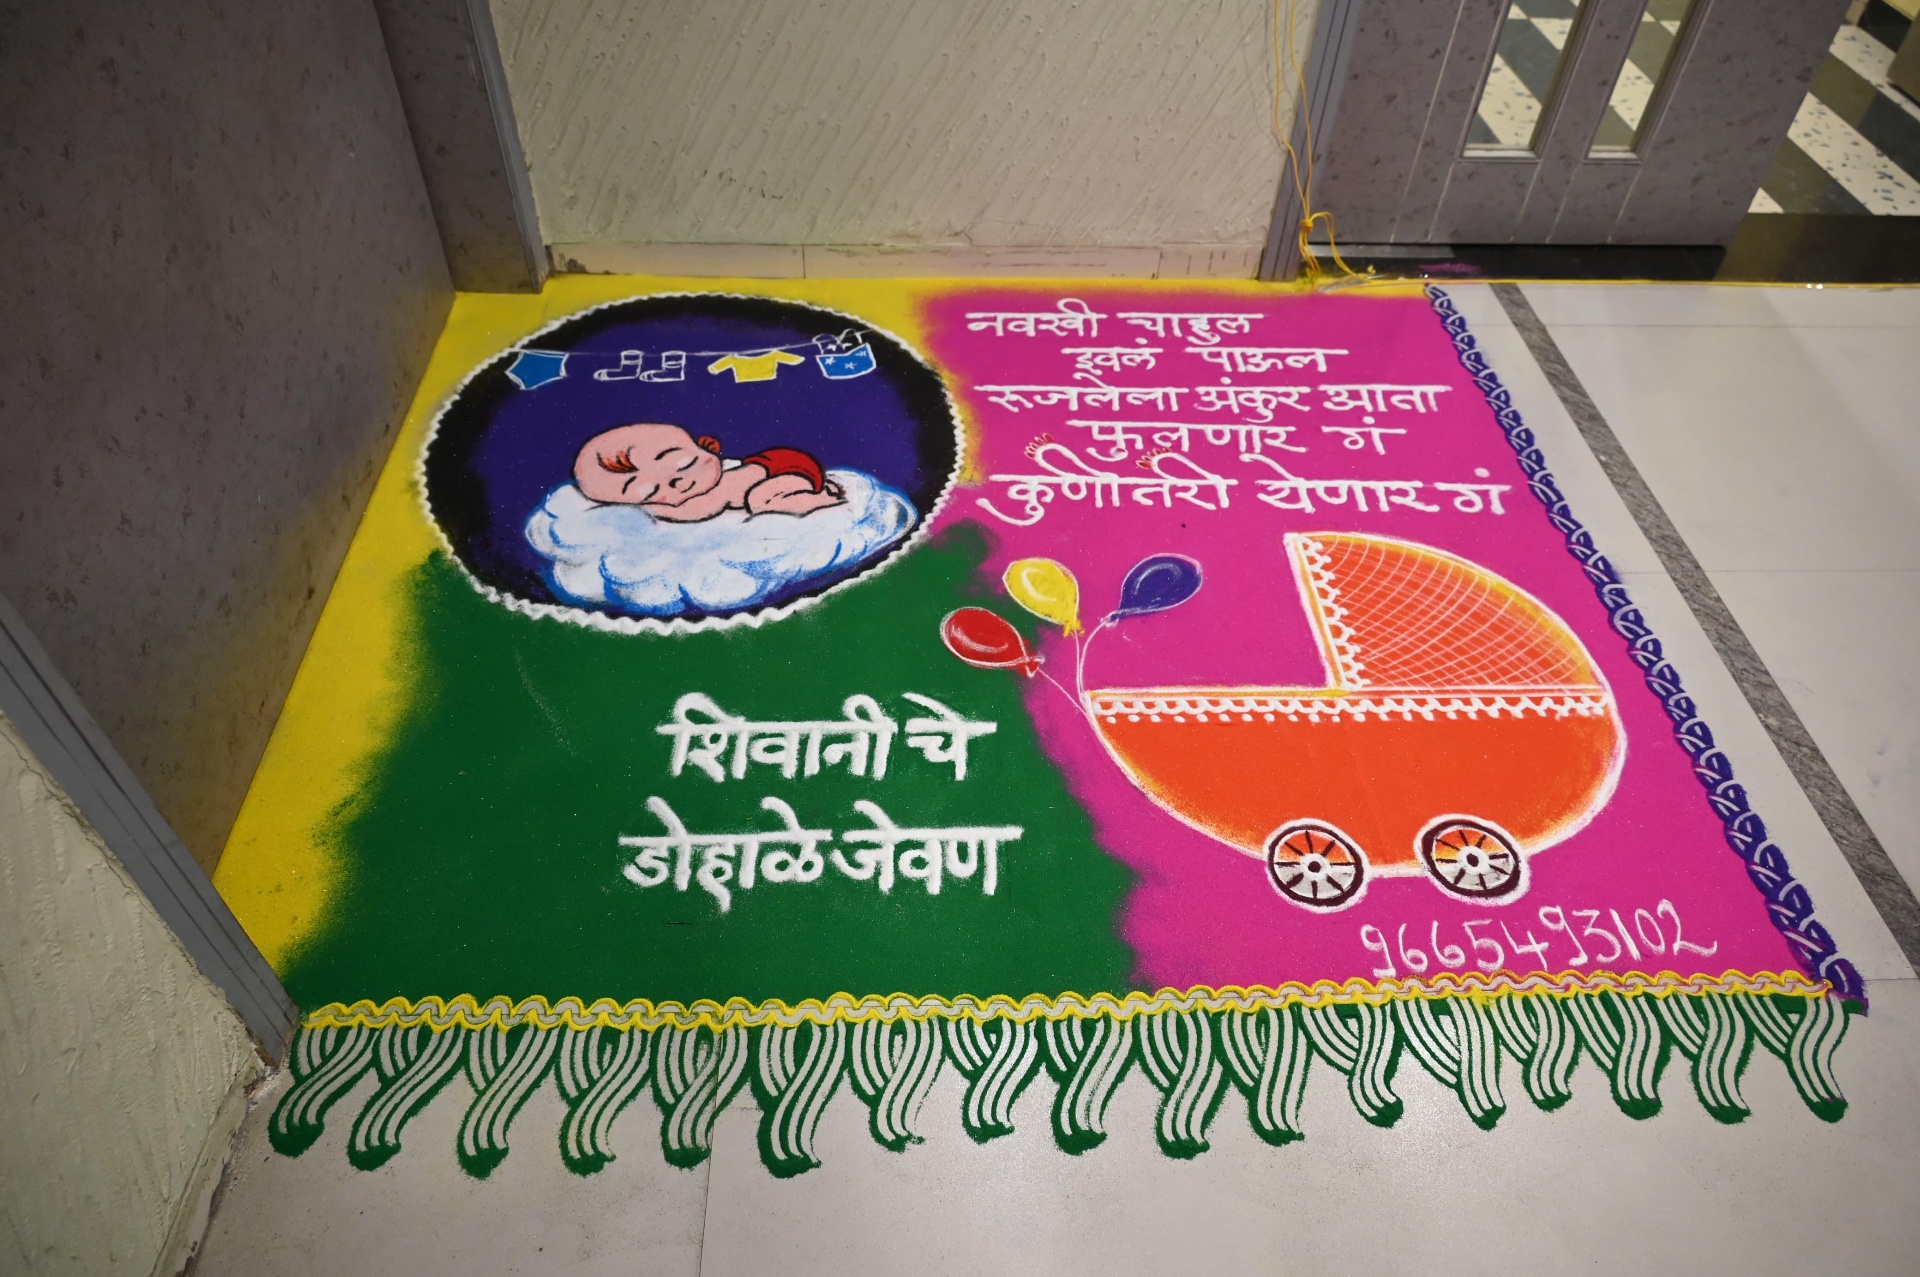 नवखी चाहुल
इवलं पाऊल
रूजलेला अंकुर आता
फुलणार गं
कुणीतरी येणार गं
शिवानी चे
डोहाळे जेवण
9665493102